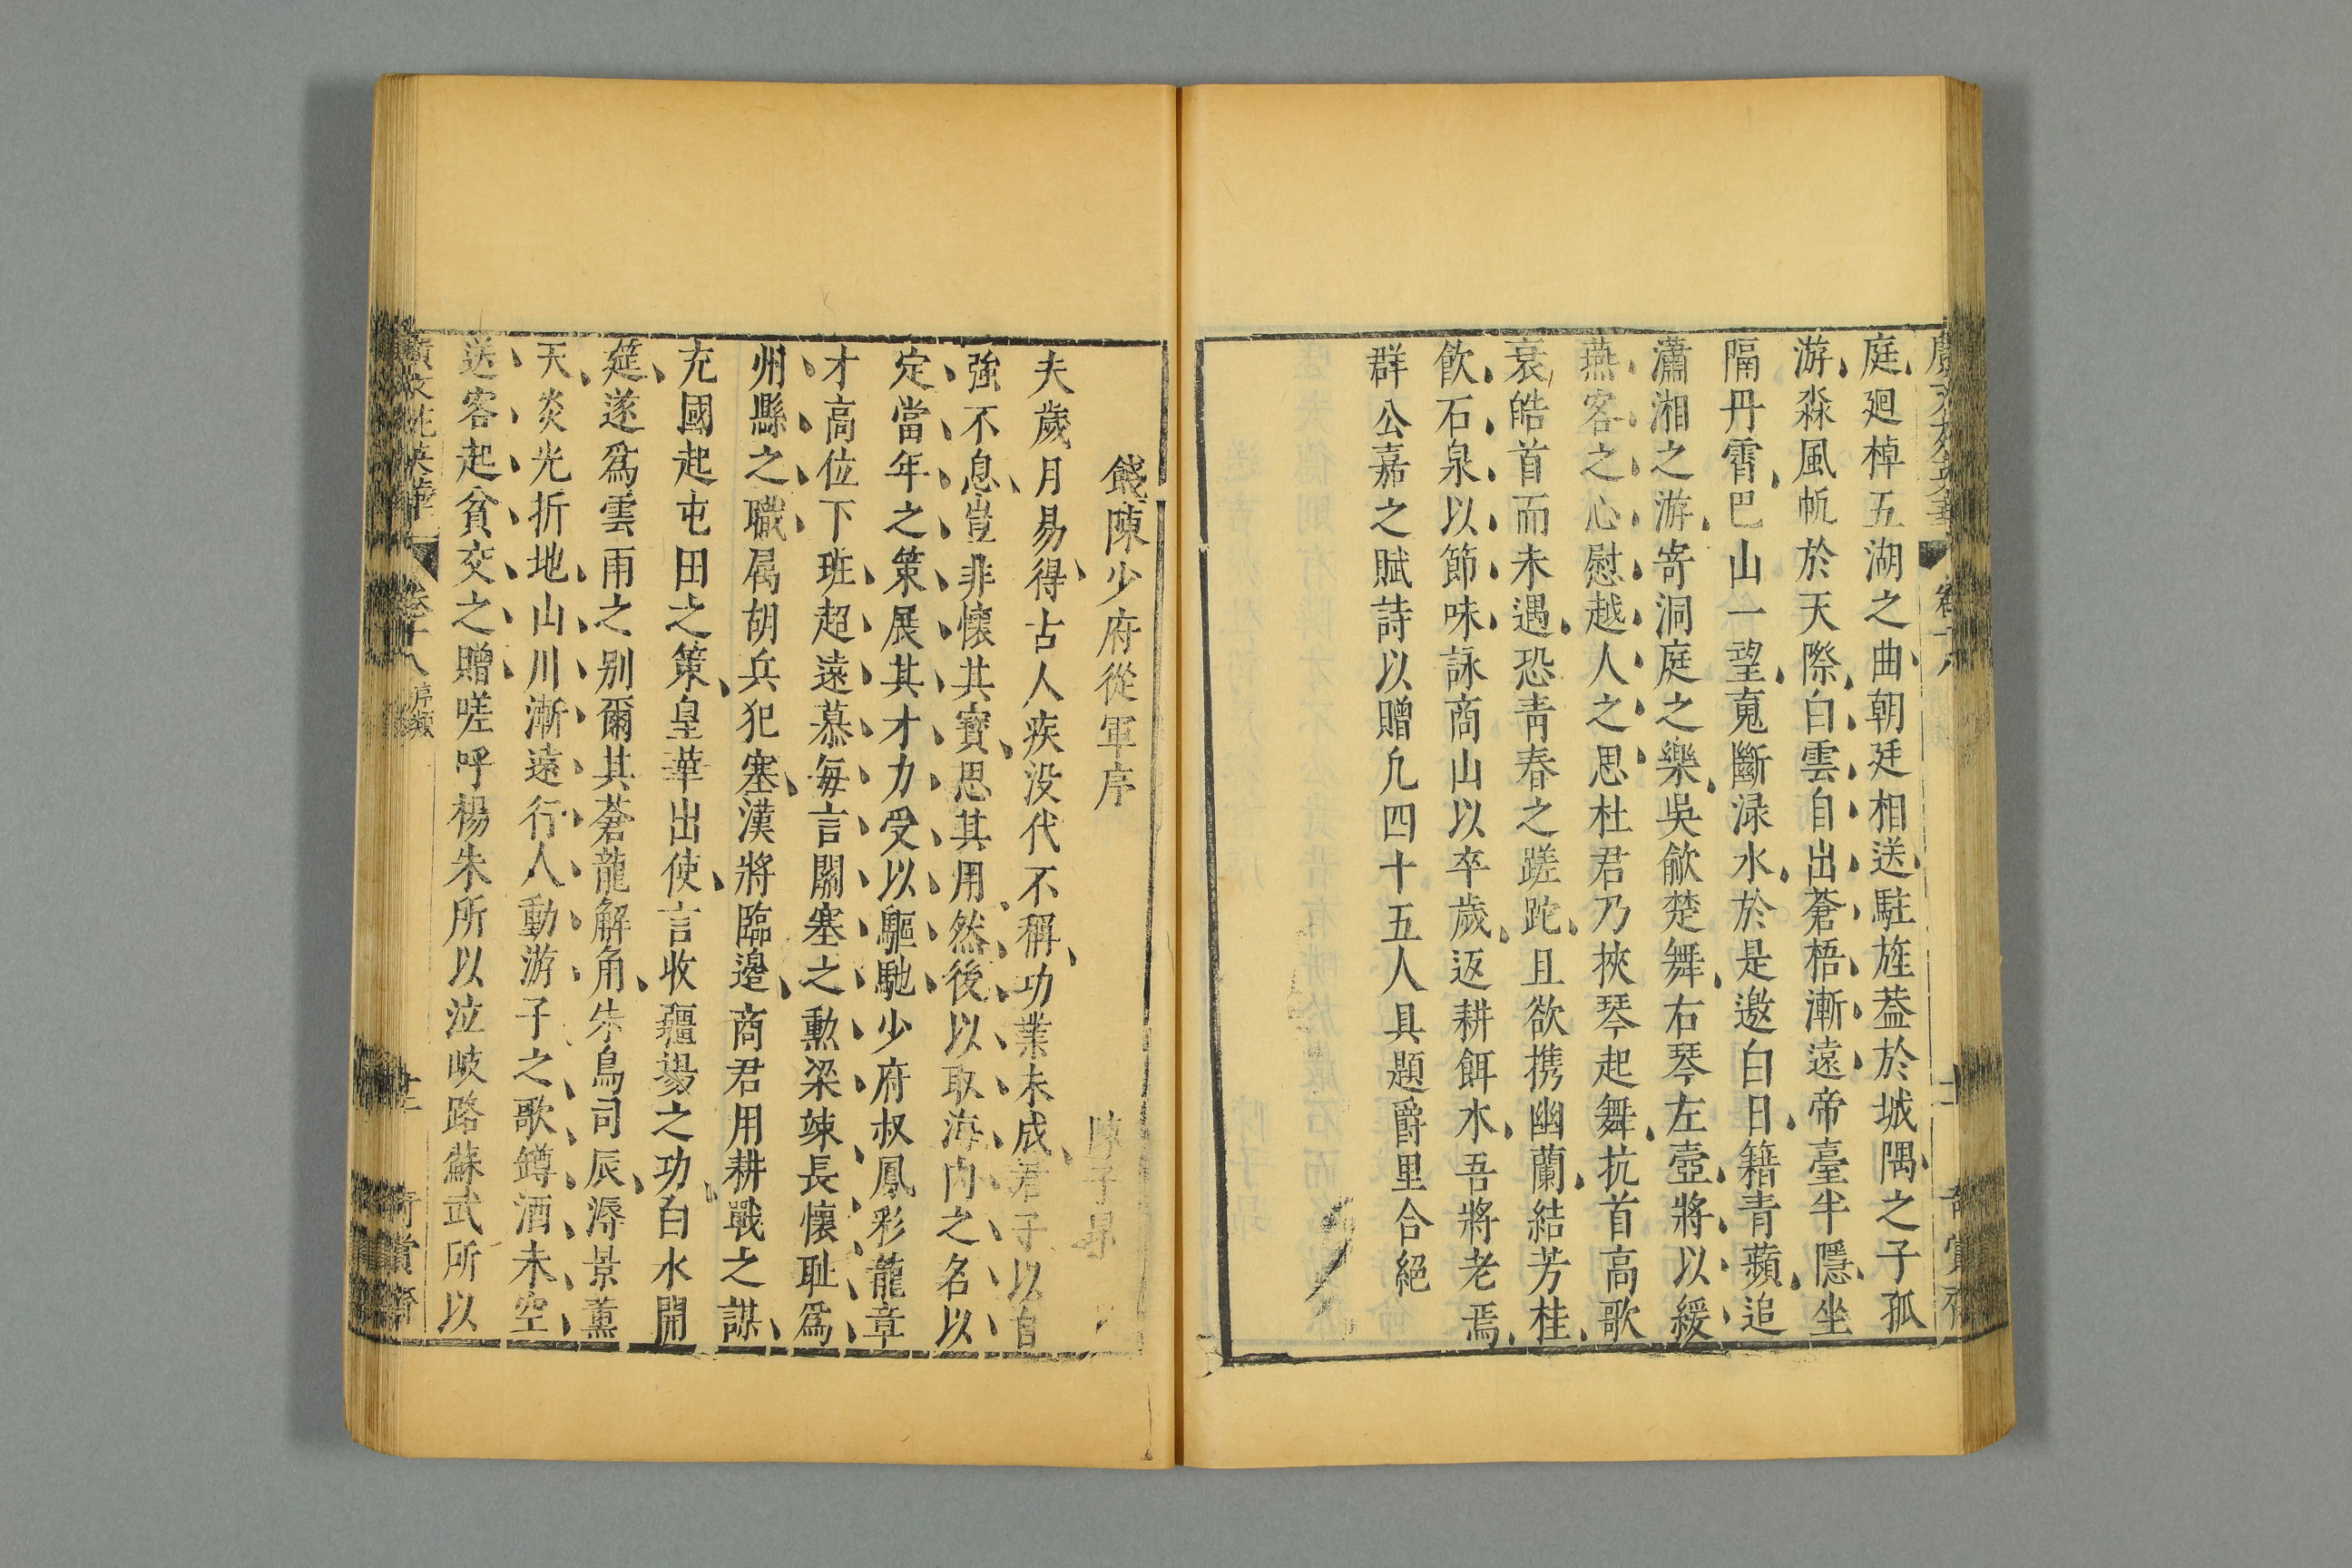 庭廻棹五湖之曲朝廷相送駐旌葢於城隅之子孤
游淼風帆於天際白雲自出蒼梧漸遠帝臺半隱坐
隔丹霄巴山一望䰟斷淥水於是邀白日籍青蘋追
瀟湘之游寄洞庭之樂吳歈楚舞右琴左壺將以緩
燕客之心慰越人之思杜君乃挾琴起舞抗首高歌
哀皓首而未遇恐青春之蹉跎且欲携幽蘭結芳桂
飲石泉以節味詠商山以卒歲返耕餌水吾將老焉
群公嘉之賦詩以贈凡四十五人具題爵里合絕
餞陳少府從軍序
陳子昂
夫歲月易得古人疾没代不稱功業未成君子以自
強不息豈非懷其寳思其用然後以取海内之名以
定當年之策展其才力受以驅馳少府叔鳳彩龍章
才高位下班超遠慕每言關塞之勲梁竦長懷耻爲
州縣之職属胡兵犯塞漢將臨邊商君用耕戰之謀
充國起屯田之策皇華出使言收疆埸之功白水開
筵遂爲雲雨之别爾其蒼龍解角朱鳥司辰溽景薰
天炎光折地山川漸遠行人動游子之歌罇酒未空
送客起貧交之贈嗟呼楊朱所以泣岐路蘇武所以
卷十八 序類
奇賞齋